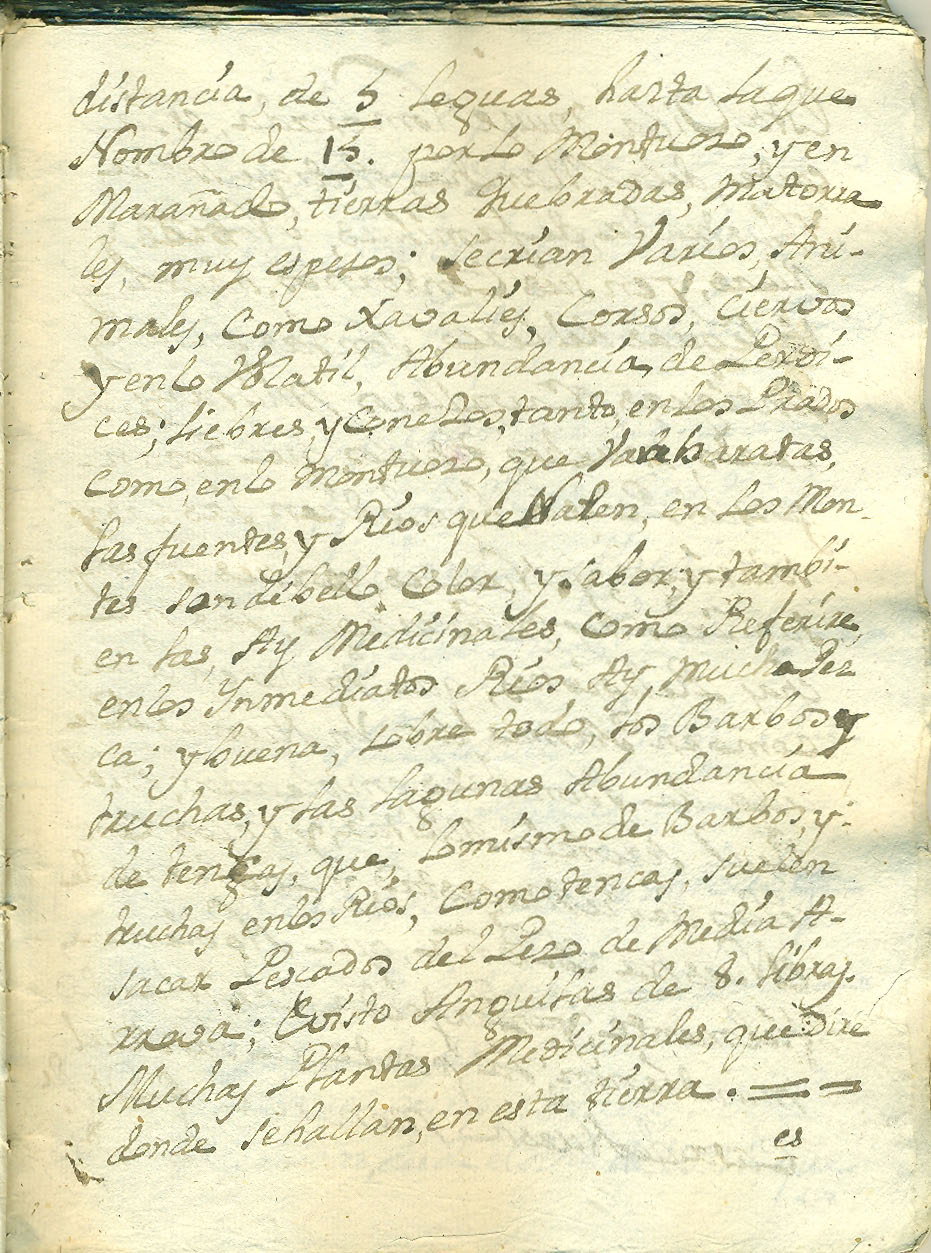 distancia, de 5 leguas, hasta la que
Nombro de 15. por lo Montuoso, y en
Marañado, tierras quebradas, Matorra
les, muy espesos; se crian Varios, Ani-
males, como Xavalies, Corsos, Ciervos
y en lo Volatil, Abundancia, de Perdi-
ces; liebres, y Conejos, tanto, en los Prados
como, en lo Montuoso, que Van baratas,
las fuentes, y Rios que Nacen, en los Mon-
tes son de bello Color, y sabor, y tambi-
en las, Ay Medicinales, como Referire,
en los Ynmediatos Rios Ay, mucha Pez
ca; y buena, sobre todo, los Barbos y
truchas, y las lagunas Abundancia
de tencas, que, lo mismo de Barbos, y
truchas en los Rios, Como tencas, suelen
sacar Pescados del Peso de Media A-
rrova; E visto Anguilas de 8. libras.
Muchas Plantas Medicinales, que dire
donde se hallan, en esta tierra. = =
es